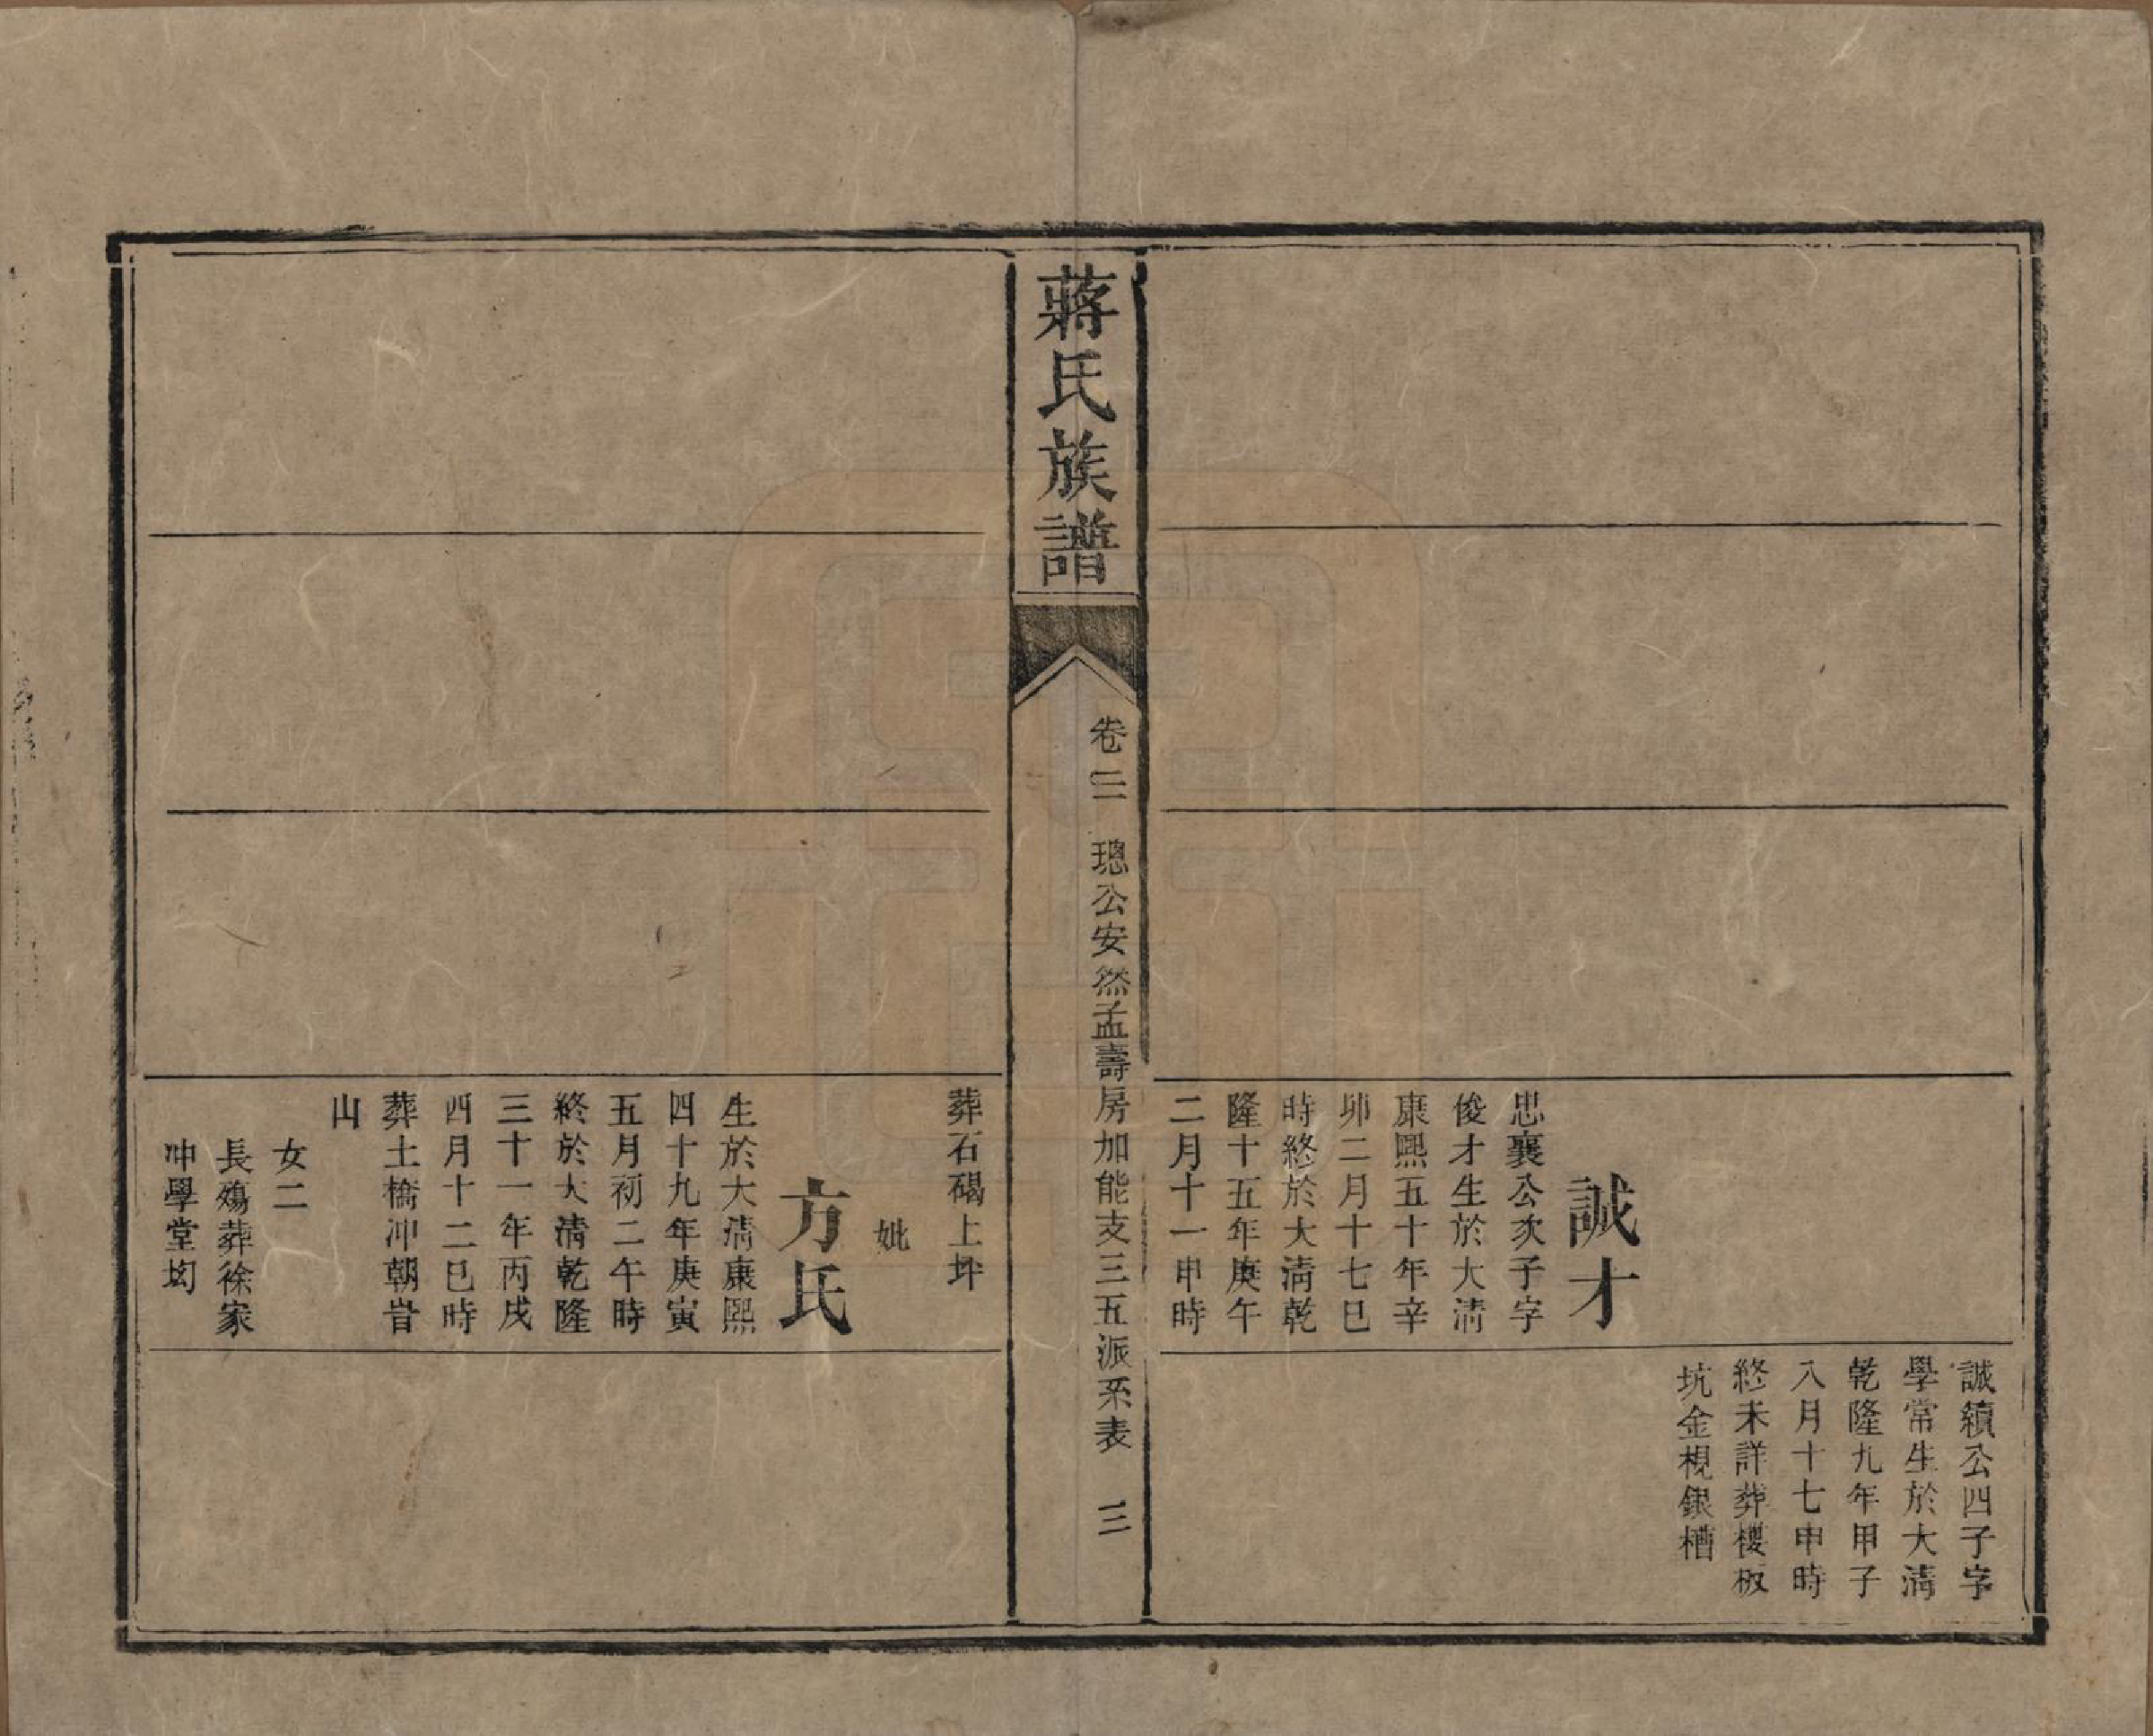 誠才
忠襄公次子字
俊才生於大清
康熙五十年辛
卯二月十七巳
時終於大清乾
隆十五年庚午
二月十一申時
誠續公四子字
學常生於大清
乾隆九年甲子
八月十七申時
終未詳葬樓板
坑金梘銀槽
蔣氏族譜
卷二　璁公安然孟壽房加能支三五派系表　三
葬石碣上坪
妣
方氏
生於大清康熙
四十九年庚寅
五月初二午時
終於大清乾隆
三十一年丙戌
四月十二巳時
葬土橋冲朝旹
山
女二
長殤葬徐家
冲學堂㘭